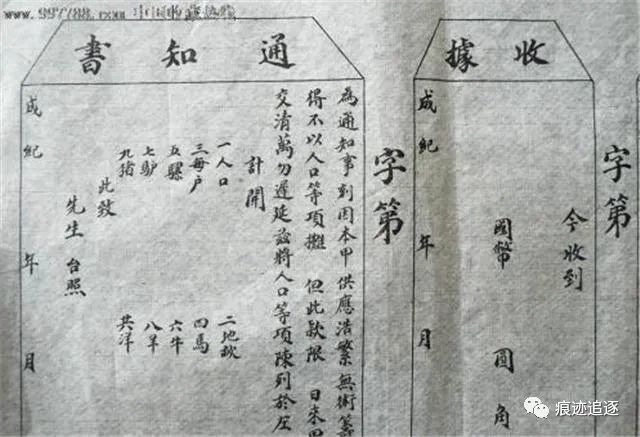 www.997788.com 中国收藏热线
收據
字第
今收到
國幣 圓 角
成紀 年 月
通知書
字第
為通知事到因本甲供應浩繁無術籌
得不以人口等項攤 但此款限 日來甲
交清萬勿遲延茲將人口等項陳列於左
計開
一人口 二地畝
三每户 四馬
五騾 六牛
七驴 八羊
九猪 共洋
此致
先生 台照
成紀 年 月
痕迹追逐